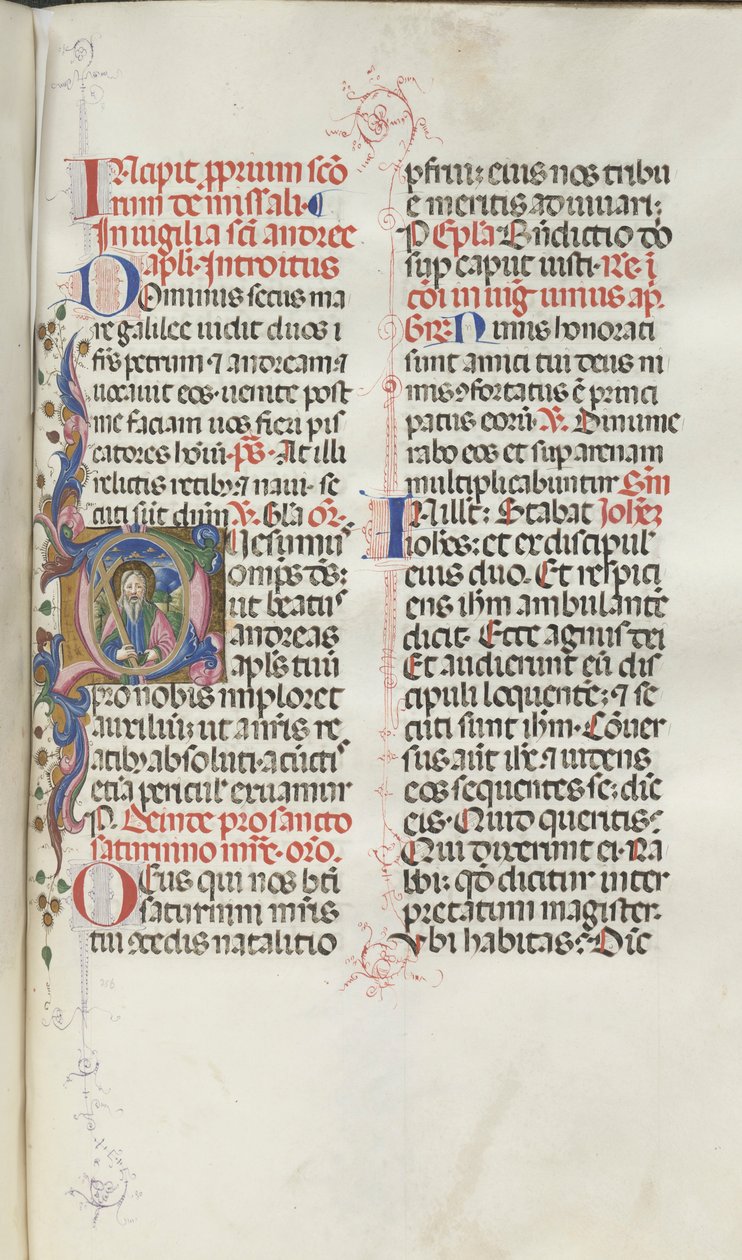 INcipit pprium scō
rum de missali.
In uigilia sc̄i andree
apl̄i. Introitus
DOminus secus ma
re galilee uidit duos i
fr̄s petrum ⁊ andream ⁊
uocauit eos. uenite post
me faciam uos fieri pis
catores hoīm. p̄s. At illi
relictis retibꝫ ⁊ naui. se
cuti sūt dn̄m ℣. Gl̄a or̄.
QUesumus
omps ds:
ut beatus
andreas
apl̄s tuus
pro nobis imploret
auxiliuꝫ: ut a nr̄is re
atibꝫ absoluti. a cūctis
etiā pericul' exuamur
P. Deinde pro sancto
saturnino mr̄e. oro.
DEus qui nos bt̄i
saturnini mr̄is
tui ꝯcedis natalitio
pfrui: eius nos tribu
e meritis adiuuari:
P Epl̄a Bn̄dictio dō
sup caput iusti. Re. ī
cōi in uiḡ unius ap̄.
Gr̄. Nimis honorati
sunt amici tui deus ni
mis ꝯfortatus ē princi
patus eoꝝ. ℣. Dinume
rabo eos et sup arenam
multiplicabuntur Sm̄
IN ill't: Stabat Joh̄ez
ioh̄es: et ex discipul'
eius duo. Et respici
ens ih̄m ambulantē
dicit. Ecce agnus dei
Et audierunt eū dis
cipuli loquentē: ⁊ se
cuti sunt ih̄m. Cōuer
sus aūt ih̄s. ⁊ uidens
eos sequentes se: dic̄
eis. Quid queritis?
Qui dixerunt ei. Ra
bbi: qd̄ dicitur inter
pretatum magister.
vbi habitas? Dic̄